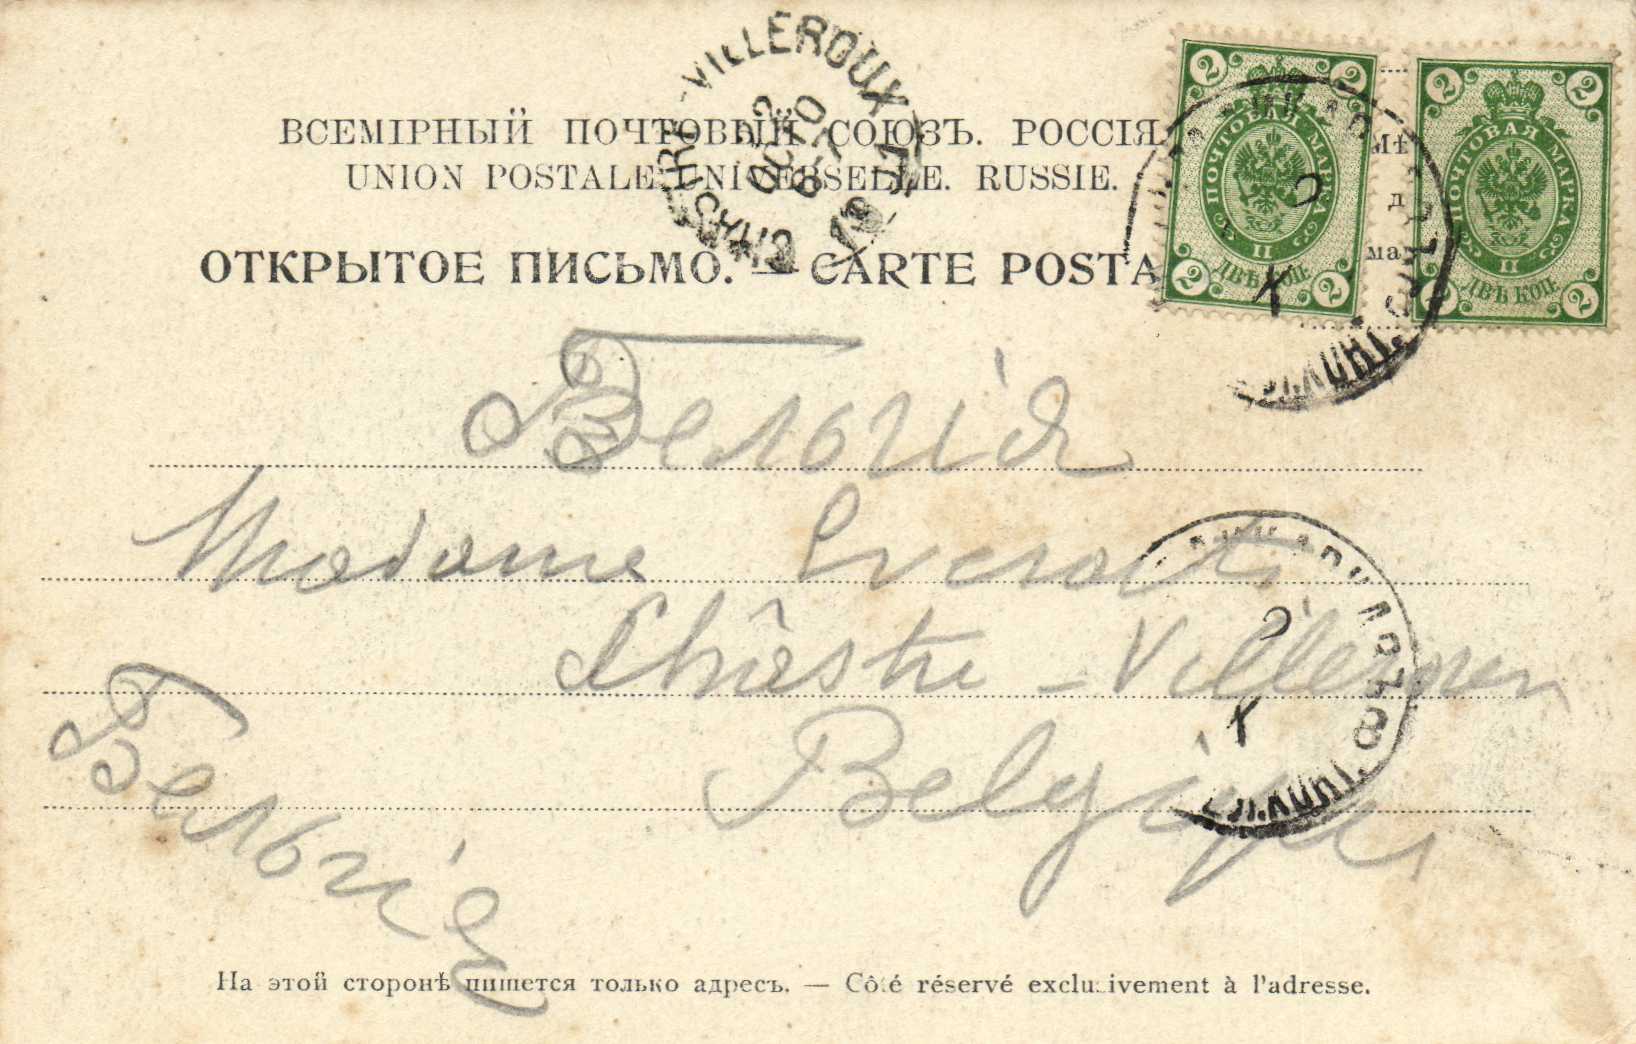 ВСЕМІРНЫЙ ПОЧТОВЫЙ СОЮЗЪ. РОССІЯ
UNION POSTALE UNIVERSELLE. RUSSIE.
ОТКРЫТОЕ ПИСЬМО. — CARTE POSTA
CHASTRE-VILLEROUX
2 2
ПОЧТОВАЯ МАРКА
II
ДВѢ КОП.
2 2
2 2
ПОЧТОВАЯ МАРКА
II
ДВѢ КОП.
2 2
Бельгія
Madame Everarts
Chastre - Villeroux
Belgique
Бельгія
На этой сторонѣ пишется только адресъ. — Côté réservé exclusivement à l'adresse.